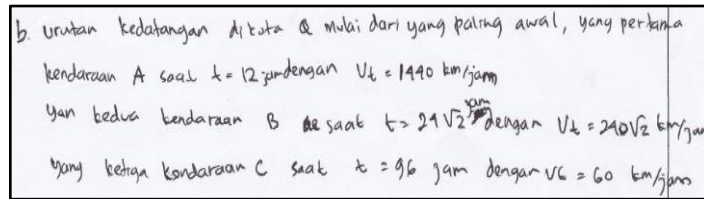 b. urutan kedatangan di kota Q mulai dari yang paling awal, yang pertama
kendaraan A saat t = 12 jam dengan Vt = 1440 km/jam
yan kedua kendaraan B saat t = 24√2 jam dengan Vt = 240√2 km/jam
yang ketiga kendaraan C saat t = 96 jam dengan Vt = 60 km/jam